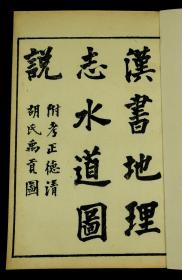 漢書地理
志水道圖
說
附孝正德清
胡氏禹貢圖